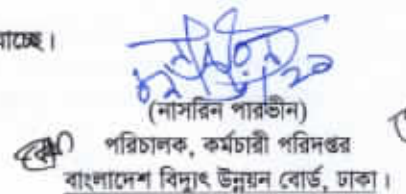 যাচ্ছে।
(নাসরিন পারভীন)
পরিচালক, কর্মচারী পরিদপ্তর
বাংলাদেশ বিদ্যুৎ উন্নয়ন বোর্ড, ঢাকা।